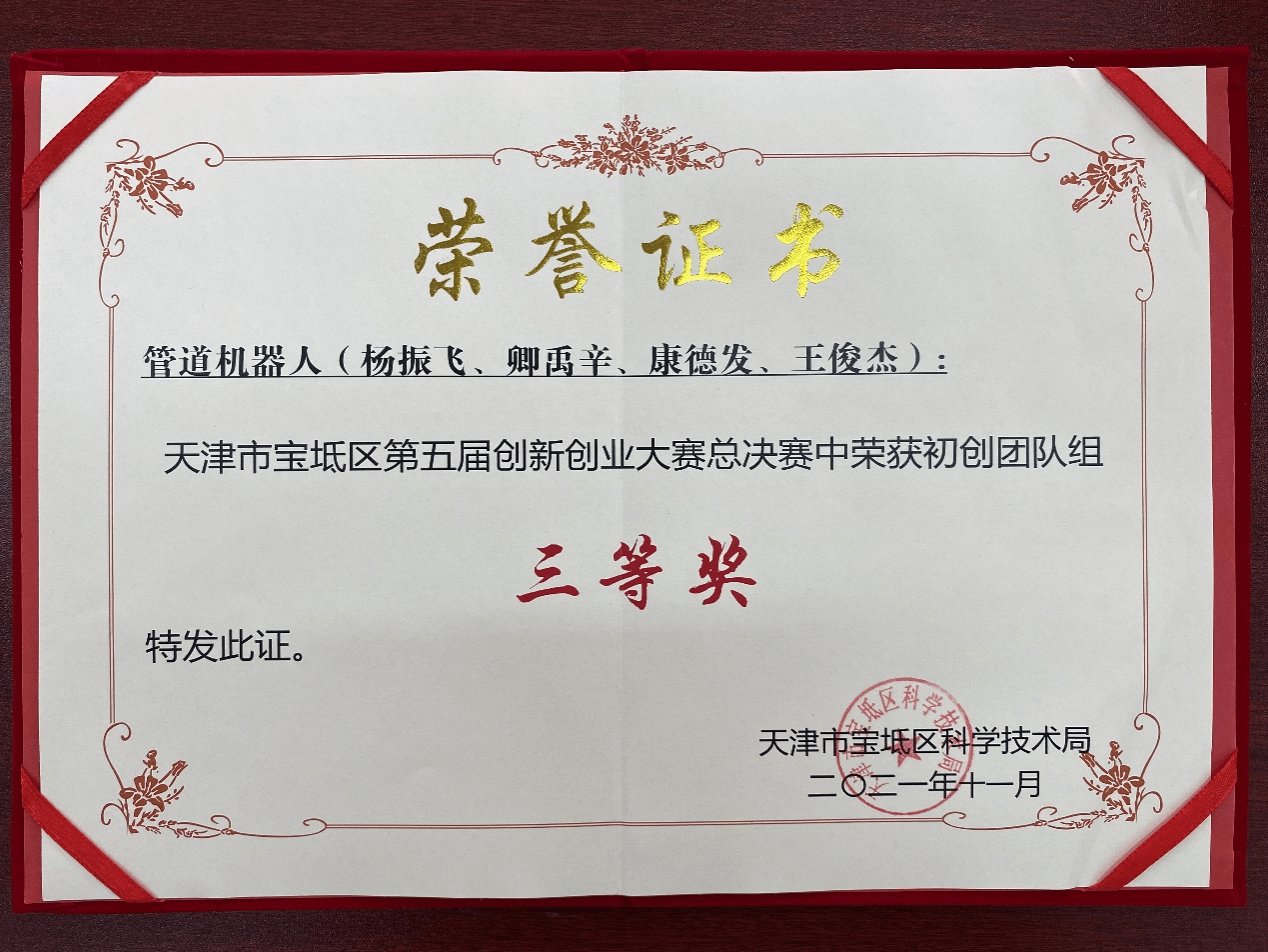 荣誉证书
管道机器人（杨振飞、卿禹辛、康德发、王俊杰）:
天津市宝坻区第五届创新创业大赛总决赛中荣获初创团队组
三等奖
特发此证。
天津市宝坻区科学技术局
二〇二一年十一月
天津市宝坻区科学技术局